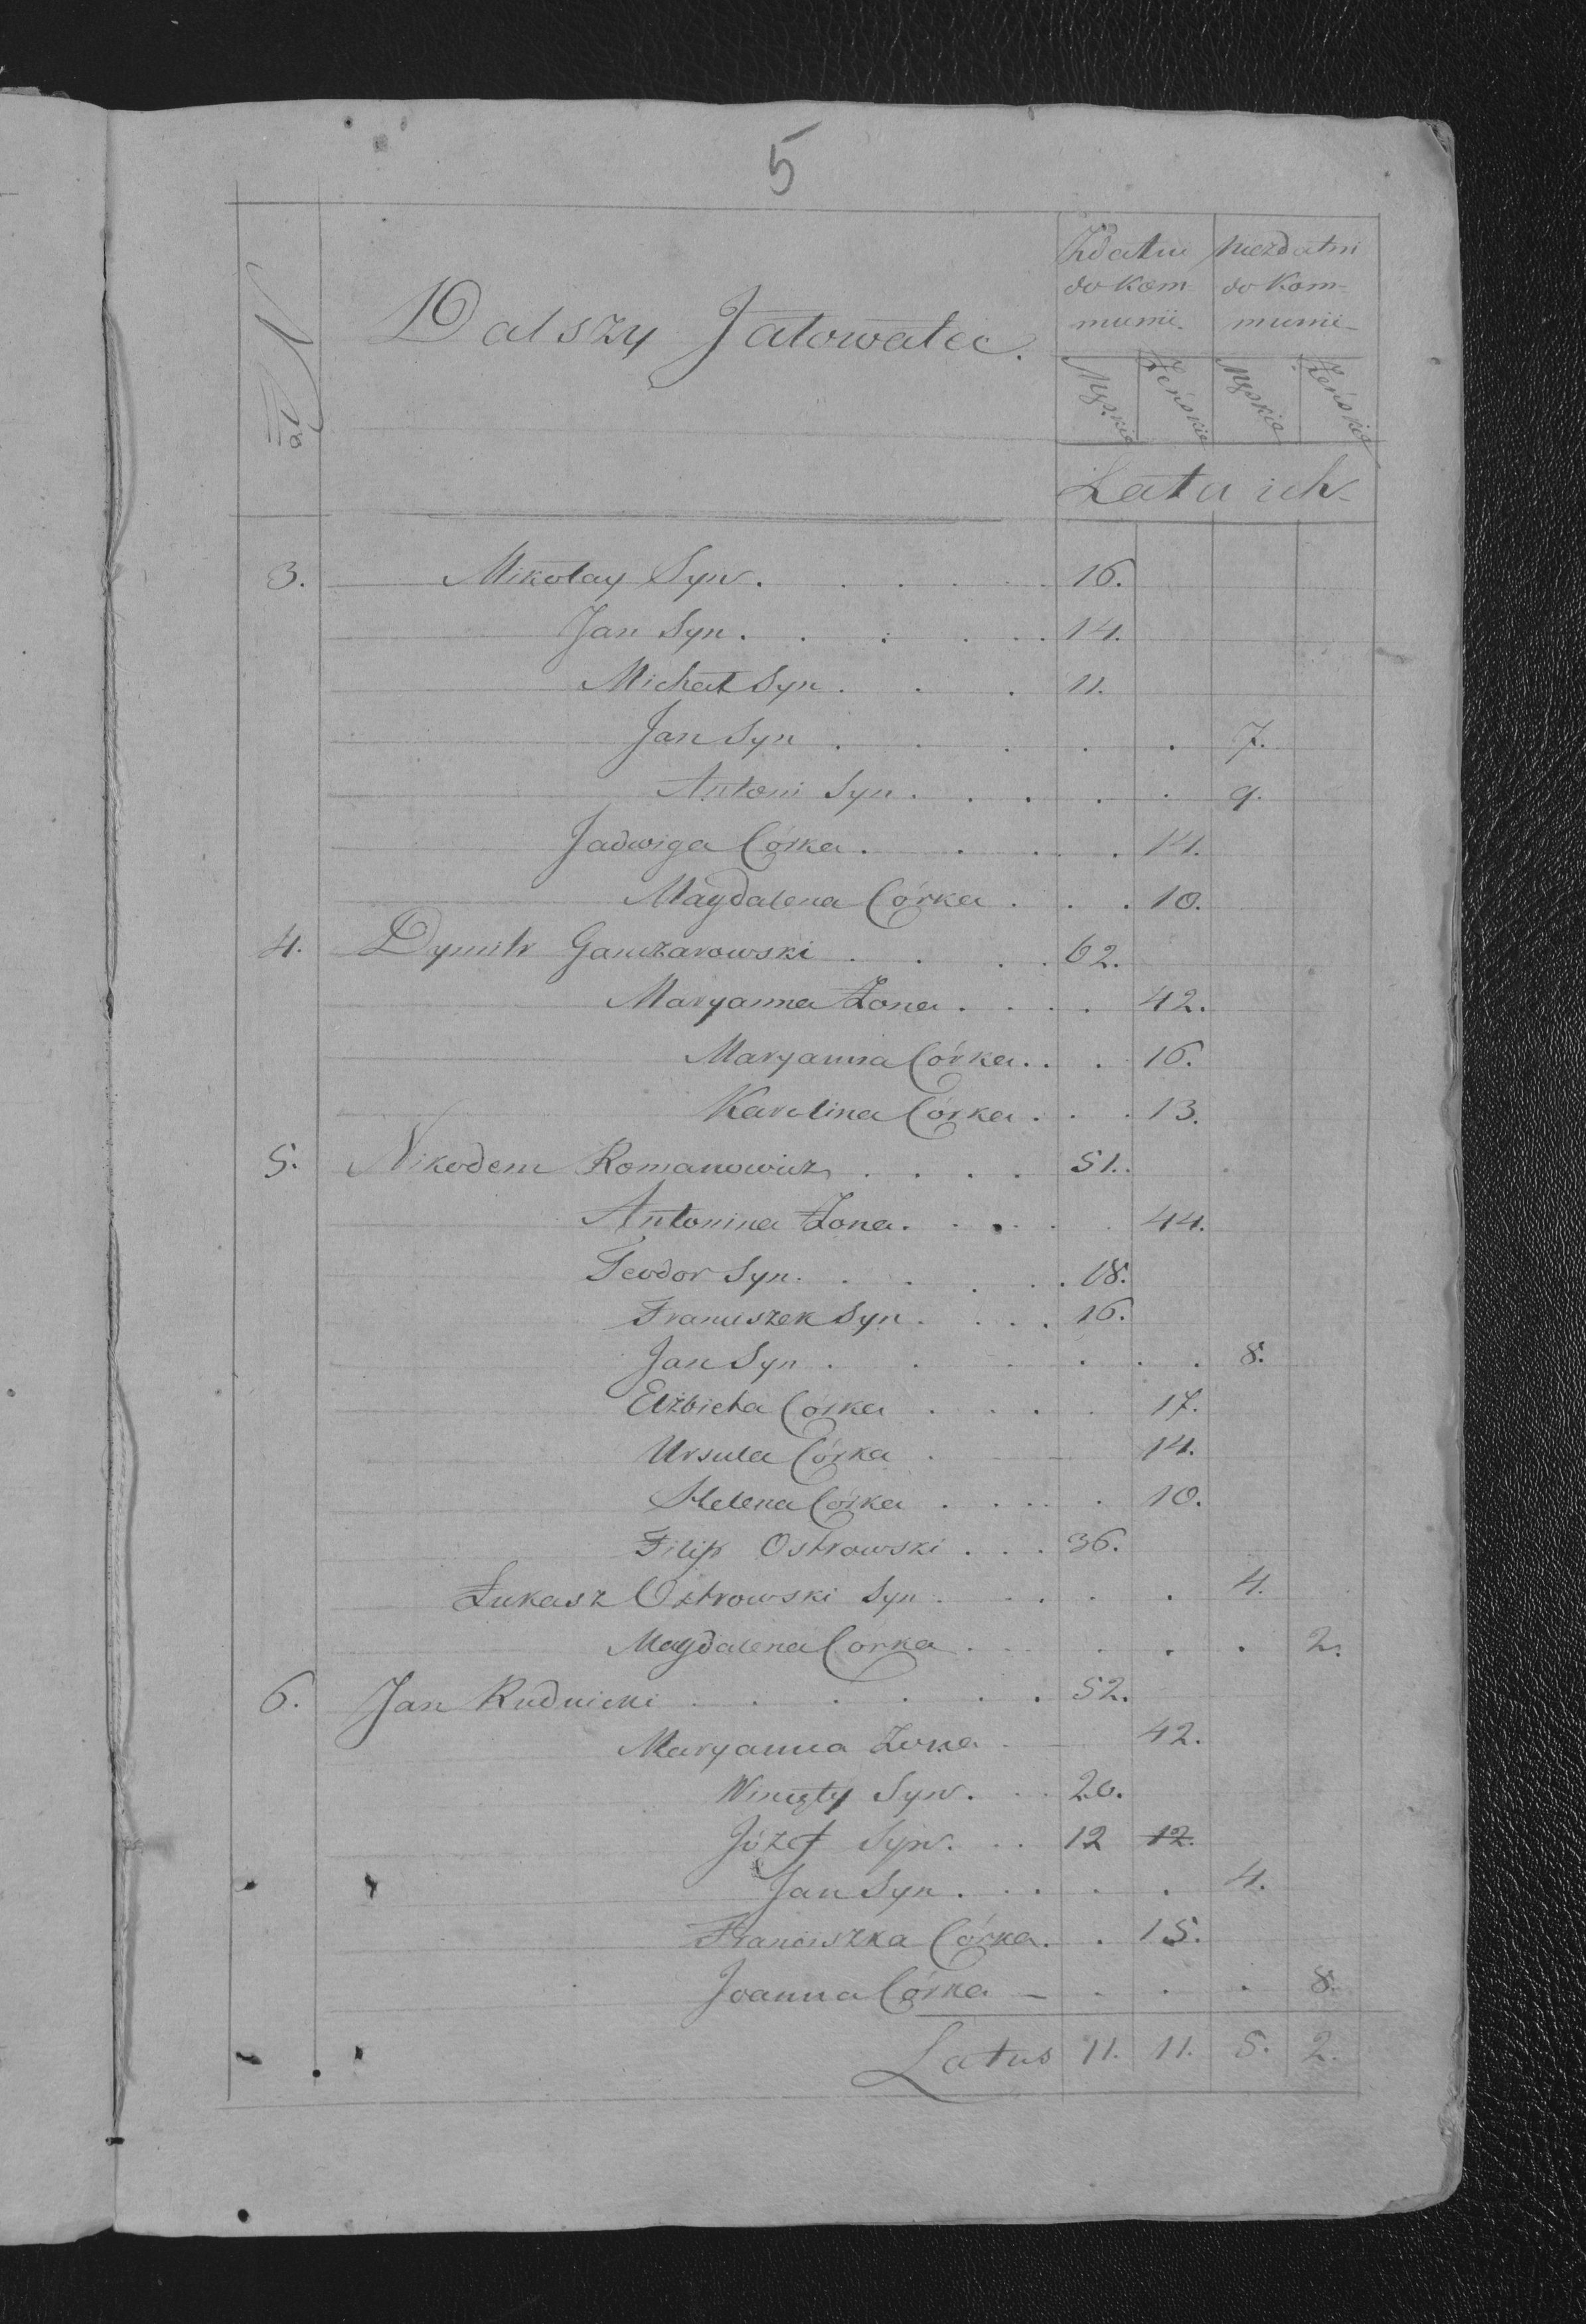 5
Zdatni
do Kom-
muni.
niezdatni
do Kom-
munii
Dalszy Jałowatec.
No
Męskie Żeńskie Męskie Żeńskie
Lata ich
3. Mikołay Syn. 16.
Jan Syn. 14.
Michał Syn. 11.
Jan Syn. 7.
Antoni Syn. 9.
Jadwiga Córka. 14.
Magdalena Córka. 10.
4. Dymitr Ganczarowski. 62.
Maryanna Żona. 42.
Maryanna Córka. 16.
Karolina Córka. 13.
5. Nikodem Romanowicz. 51.
Antonina Żona. 44.
Teodor Syn. 18.
Franciszek Syn. 16.
Jan Syn. 8.
Elżbieta Córka. 17.
Ursula Córka. 14.
Helena Córka. 10.
Filip Ostrowski. 36.
Łukasz Ostrowski Syn. 4.
Magdalena Córka. 2.
6. Jan Rudnicki. 52.
Maryanna Żona. 42.
Wincęty Syn. 20.
Józef Syn. 12 12.
Jan Syn. 4.
Franciszka Córka. 15.
Joanna Córka - 8.
Latus 11. 11. 5. 2.